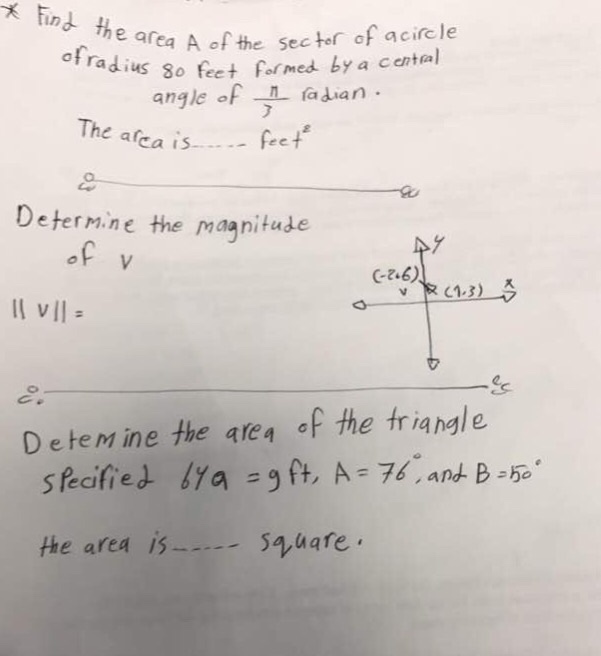 * Find the area A of the sector of a circle
of radius 80 feet formed by a central
angle of π/3 radian.
The area is...... feet²
Determine the magnitude
of v
y
(-2,6)
v
(1,3)
x
|| v || =
Detemine the area of the triangle
specified by a = 9 ft, A = 76°, and B = 50°
the area is ------ square.